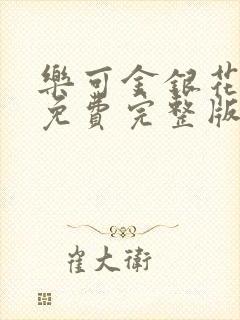 樂可金銀花
免費完整版
崔大衛